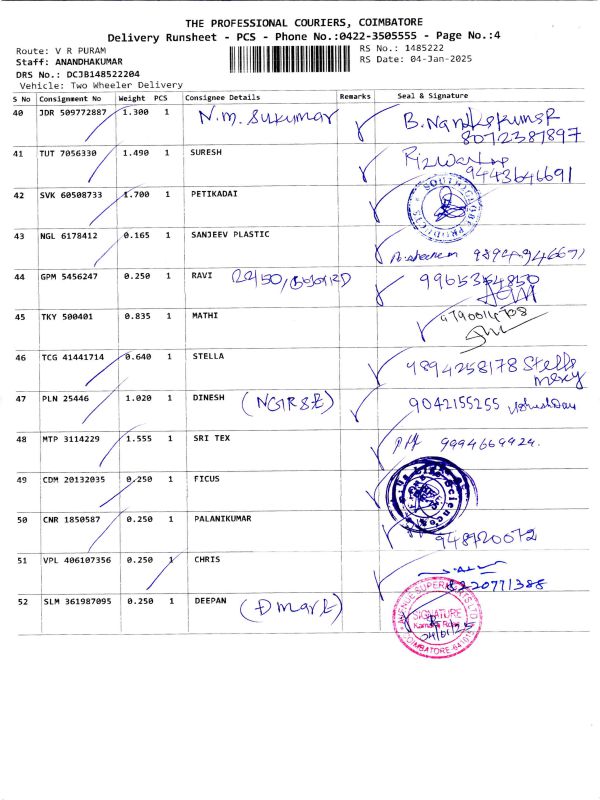 THE PROFESSIONAL COURIERS, COIMBATORE
Delivery Runsheet - PCS - Phone No.:0422-3505555 - Page No.:4
Route: V R PURAM
RS No.: 1485222
Staff: ANANDHAKUMAR
RS Date: 04-Jan-2025
DRS No.: DCJB148522204
Vehicle: Two Wheeler Delivery
S No Consignment No Weight PCS Consignee Details Remarks Seal & Signature
40 JDR 509772887 1.300 1 N.m. Sukumar
8072387897
41 TUT 7056330 1.490 1 SURESH
9443646691
42 SVK 60508733 1.700 1 PETIKADAI
43 NGL 6178412 0.165 1 SANJEEV PLASTIC
44 GPM 5456247 0.250 1 RAVI
45 TKY 500401 0.835 1 MATHI
9790014708
46 TCG 41441714 0.640 1 STELLA 9894258178 Stella
mercy
47 PLN 25446 1.020 1 DINESH 9042155255
48 MTP 3114229 1.555 1 SRI TEX 9994669924.
49 CDM 20132035 0.250 1 FICUS
50 CNR 1850587 0.250 1 PALANIKUMAR
51 VPL 406107356 0.250 1 CHRIS
8220771388
52 SLM 361987095 0.250 1 DEEPAN (D mart)
SIGNATURE
COIMBATORE-641015